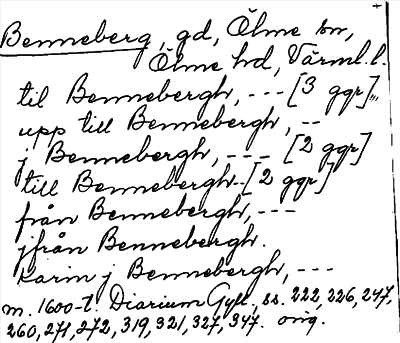 Benneberg, gd, Ölme sn,
Ölme hd, Värml. l.
til Bennebergh, --- [3 ggr],,,
upp till Bennebergh, --
j Bennebergh, --- [2 ggr]
till Bennebergh--[2 ggr]
från Bennebergh, ---
jfrån Bennebergh.
Karin j Bennebergh, ---
m. 1600-t. Diarium Gyll., ss. 222, 226, 247,
260, 271, 272, 319, 321, 327, 347. orig.